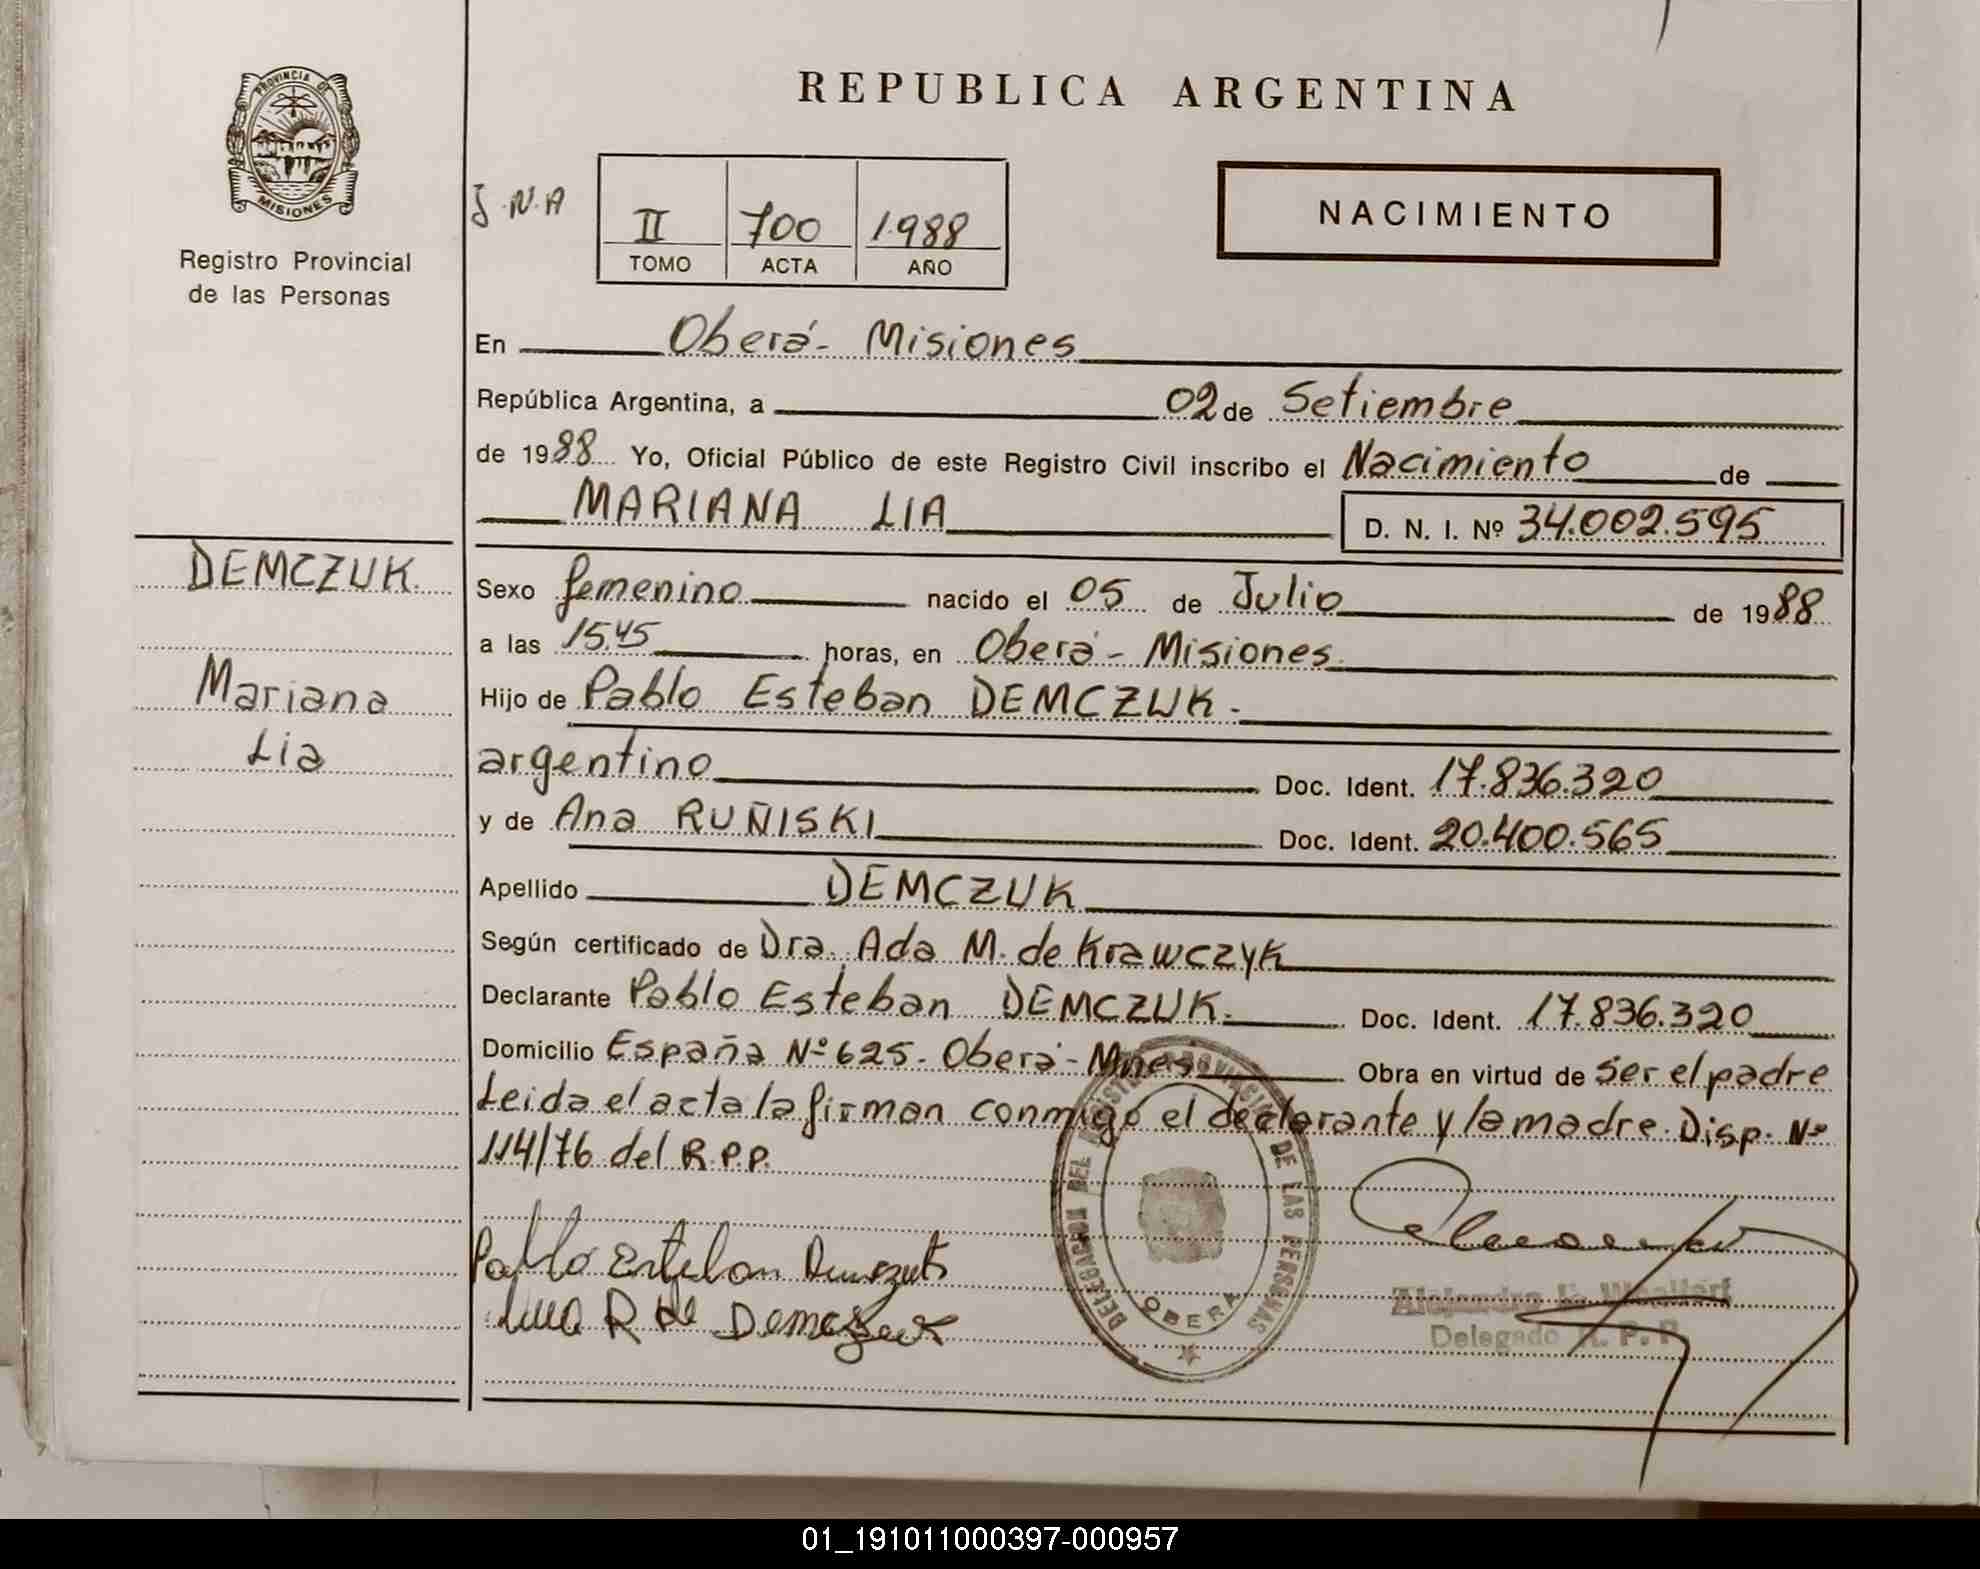 PROVINCIA DE
MISIONES
Registro Provincial
de las Personas
REPUBLICA ARGENTINA
J.N.A
II 700 1.988
TOMO ACTA AÑO
NACIMIENTO
En Oberá - Misiones
República Argentina, a 02 de Setiembre
de 1988 Yo, Oficial Público de este Registro Civil inscribo el Nacimiento de
MARIANA LIA D. N. I. Nº 34.002.595
DEMCZUK
Mariana
Lia
Sexo femenino nacido el 05 de Julio de 1988
a las 15.45 horas, en Oberá - Misiones
Hijo de Pablo Esteban DEMCZUK.
argentino Doc. Ident. 17.836.320
y de Ana RUÑISKI Doc. Ident. 20.400.565
Apellido DEMCZUK
Según certificado de Dra. Ada M. de Krawczyk
Declarante Pablo Esteban DEMCZUK. Doc. Ident. 17.836.320
Domicilio España Nº 625. Oberá - Mnes Obra en virtud de Ser el padre
Leida el acta la firman conmigo el declarante y la madre. Disp. Nº
114/76 del R.P.P.
Pablo Esteban Demczuk
Ana R de Demczuk
DELEGACION DEL REGISTRO PROVINCIAL DE LAS PERSONAS
OBERA
Alejandro
Delegado R. P. P.
01_191011000397-000957